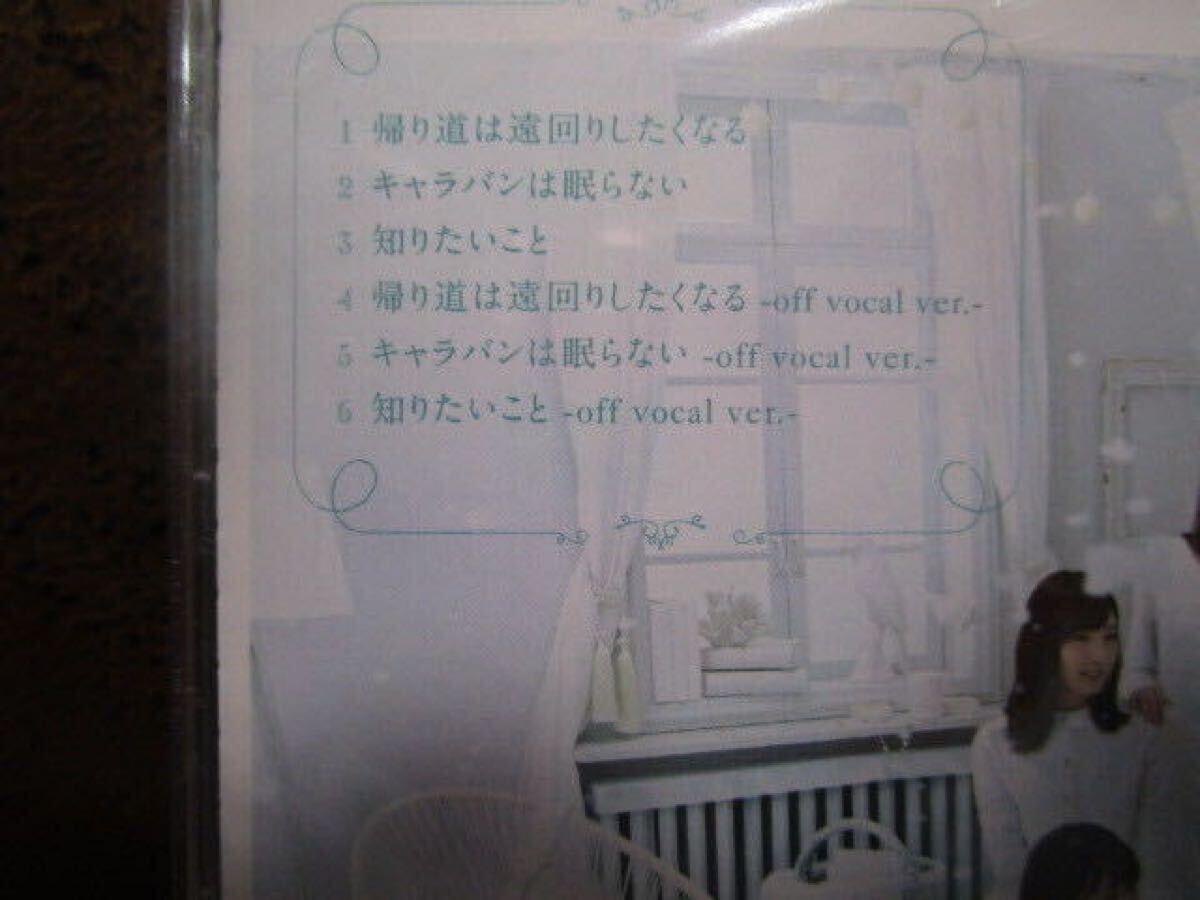 1 帰り道は遠回りしたくなる
2 キャラバンは眠らない
3 知りたいこと
4 帰り道は遠回りしたくなる -off vocal ver.-
5 キャラバンは眠らない -off vocal ver.-
6 知りたいこと -off vocal ver.-